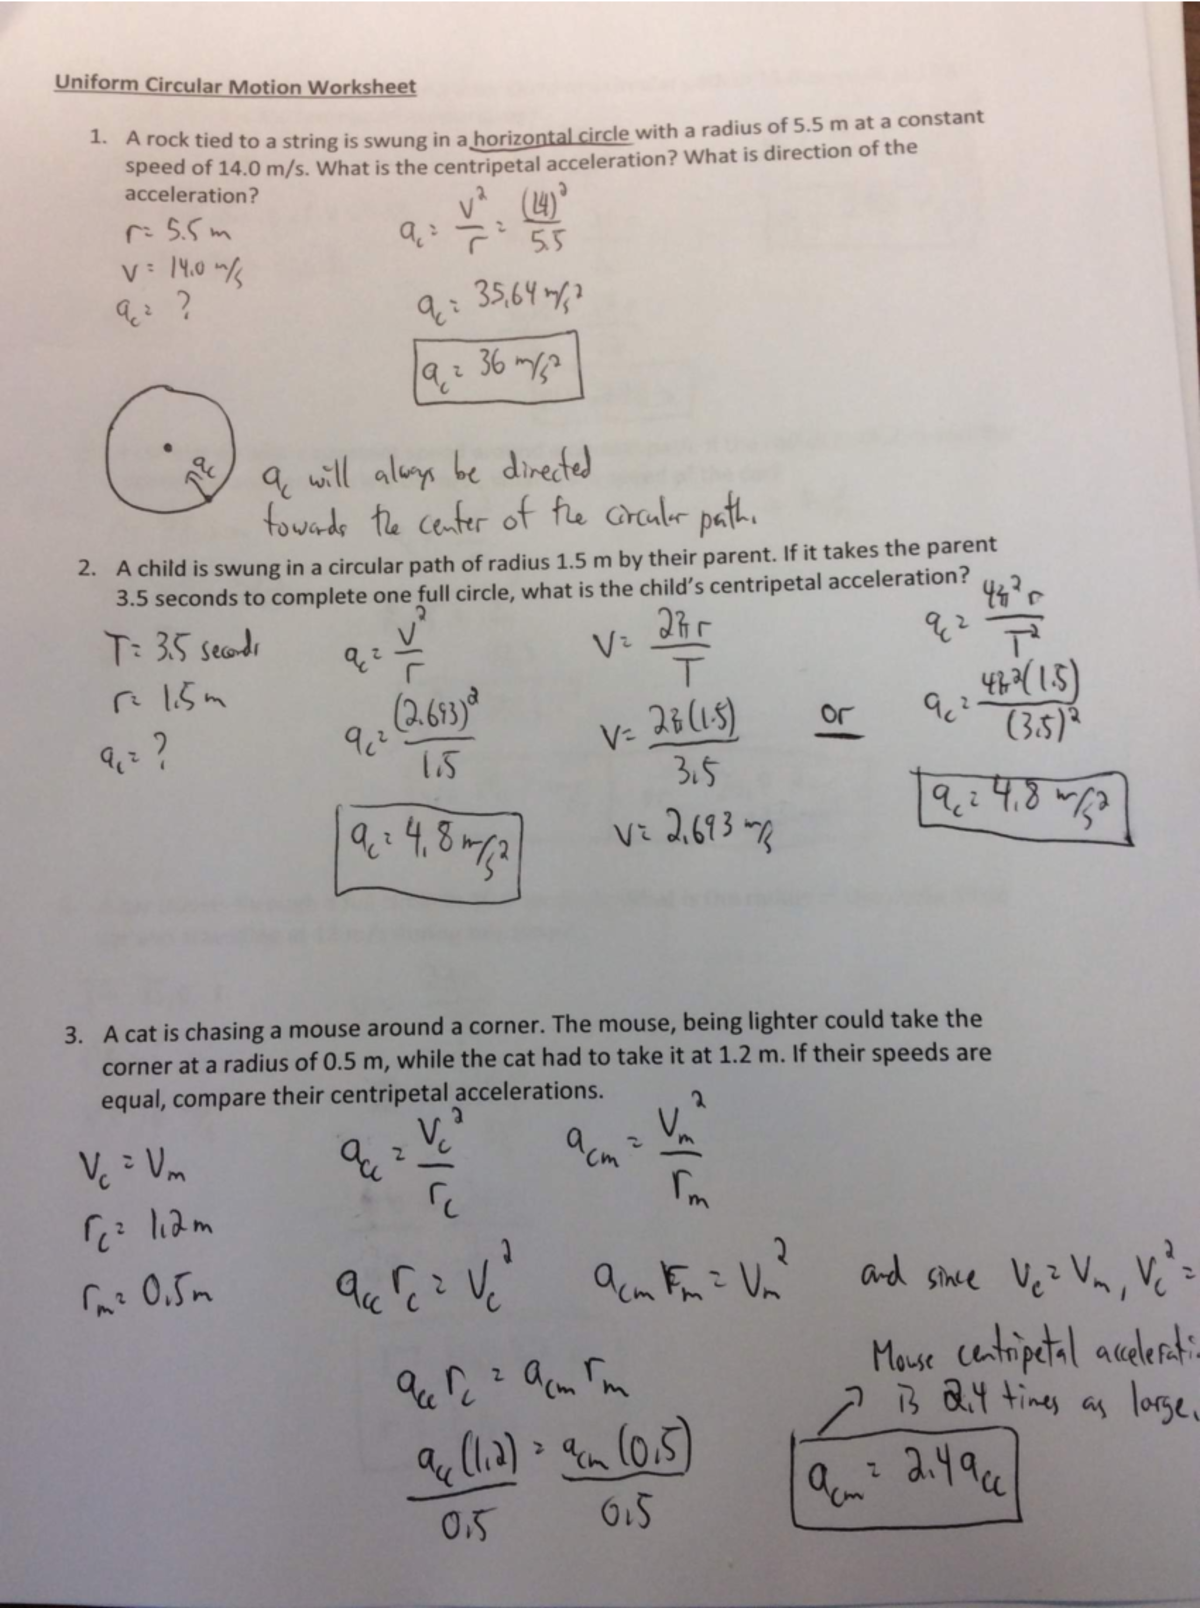 Uniform Circular Motion Worksheet
1. A rock tied to a string is swung in a horizontal circle with a radius of 5.5 m at a constant
speed of 14.0 m/s. What is the centripetal acceleration? What is direction of the
acceleration?
r = 5.5 m
v = 14.0 m/s
a_c = ?
a_c = v²/r = (14)²/5.5
a_c = 35.64 m/s²
a_c = 36 m/s²
a_c
a_c will always be directed
towards the center of the circular path.
2. A child is swung in a circular path of radius 1.5 m by their parent. If it takes the parent
3.5 seconds to complete one full circle, what is the child's centripetal acceleration?
T = 3.5 seconds
r = 1.5 m
a_c = ?
a_c = v²/r
a_c = (2.693)²/1.5
a_c = 4.8 m/s²
v = 2πr/T
v = 2π(1.5)/3.5
v = 2.693 m/s
or
a_c = 4π²r/T²
a_c = 4π²(1.5)/(3.5)²
a_c = 4.8 m/s²
3. A cat is chasing a mouse around a corner. The mouse, being lighter could take the
corner at a radius of 0.5 m, while the cat had to take it at 1.2 m. If their speeds are
equal, compare their centripetal accelerations.
V_c = V_m
r_c = 1.2 m
r_m = 0.5 m
a_cc = V_c²/r_c
a_cm = V_m²/r_m
a_cc r_c = V_c²
a_cm r_m = V_m²
and since V_c = V_m, V_c² =
a_cc r_c = a_cm r_m
a_cc (1.2)/0.5 = a_cm (0.5)/0.5
Mouse centripetal
is 2.4 times as large.
a_cm = 2.4 a_cc